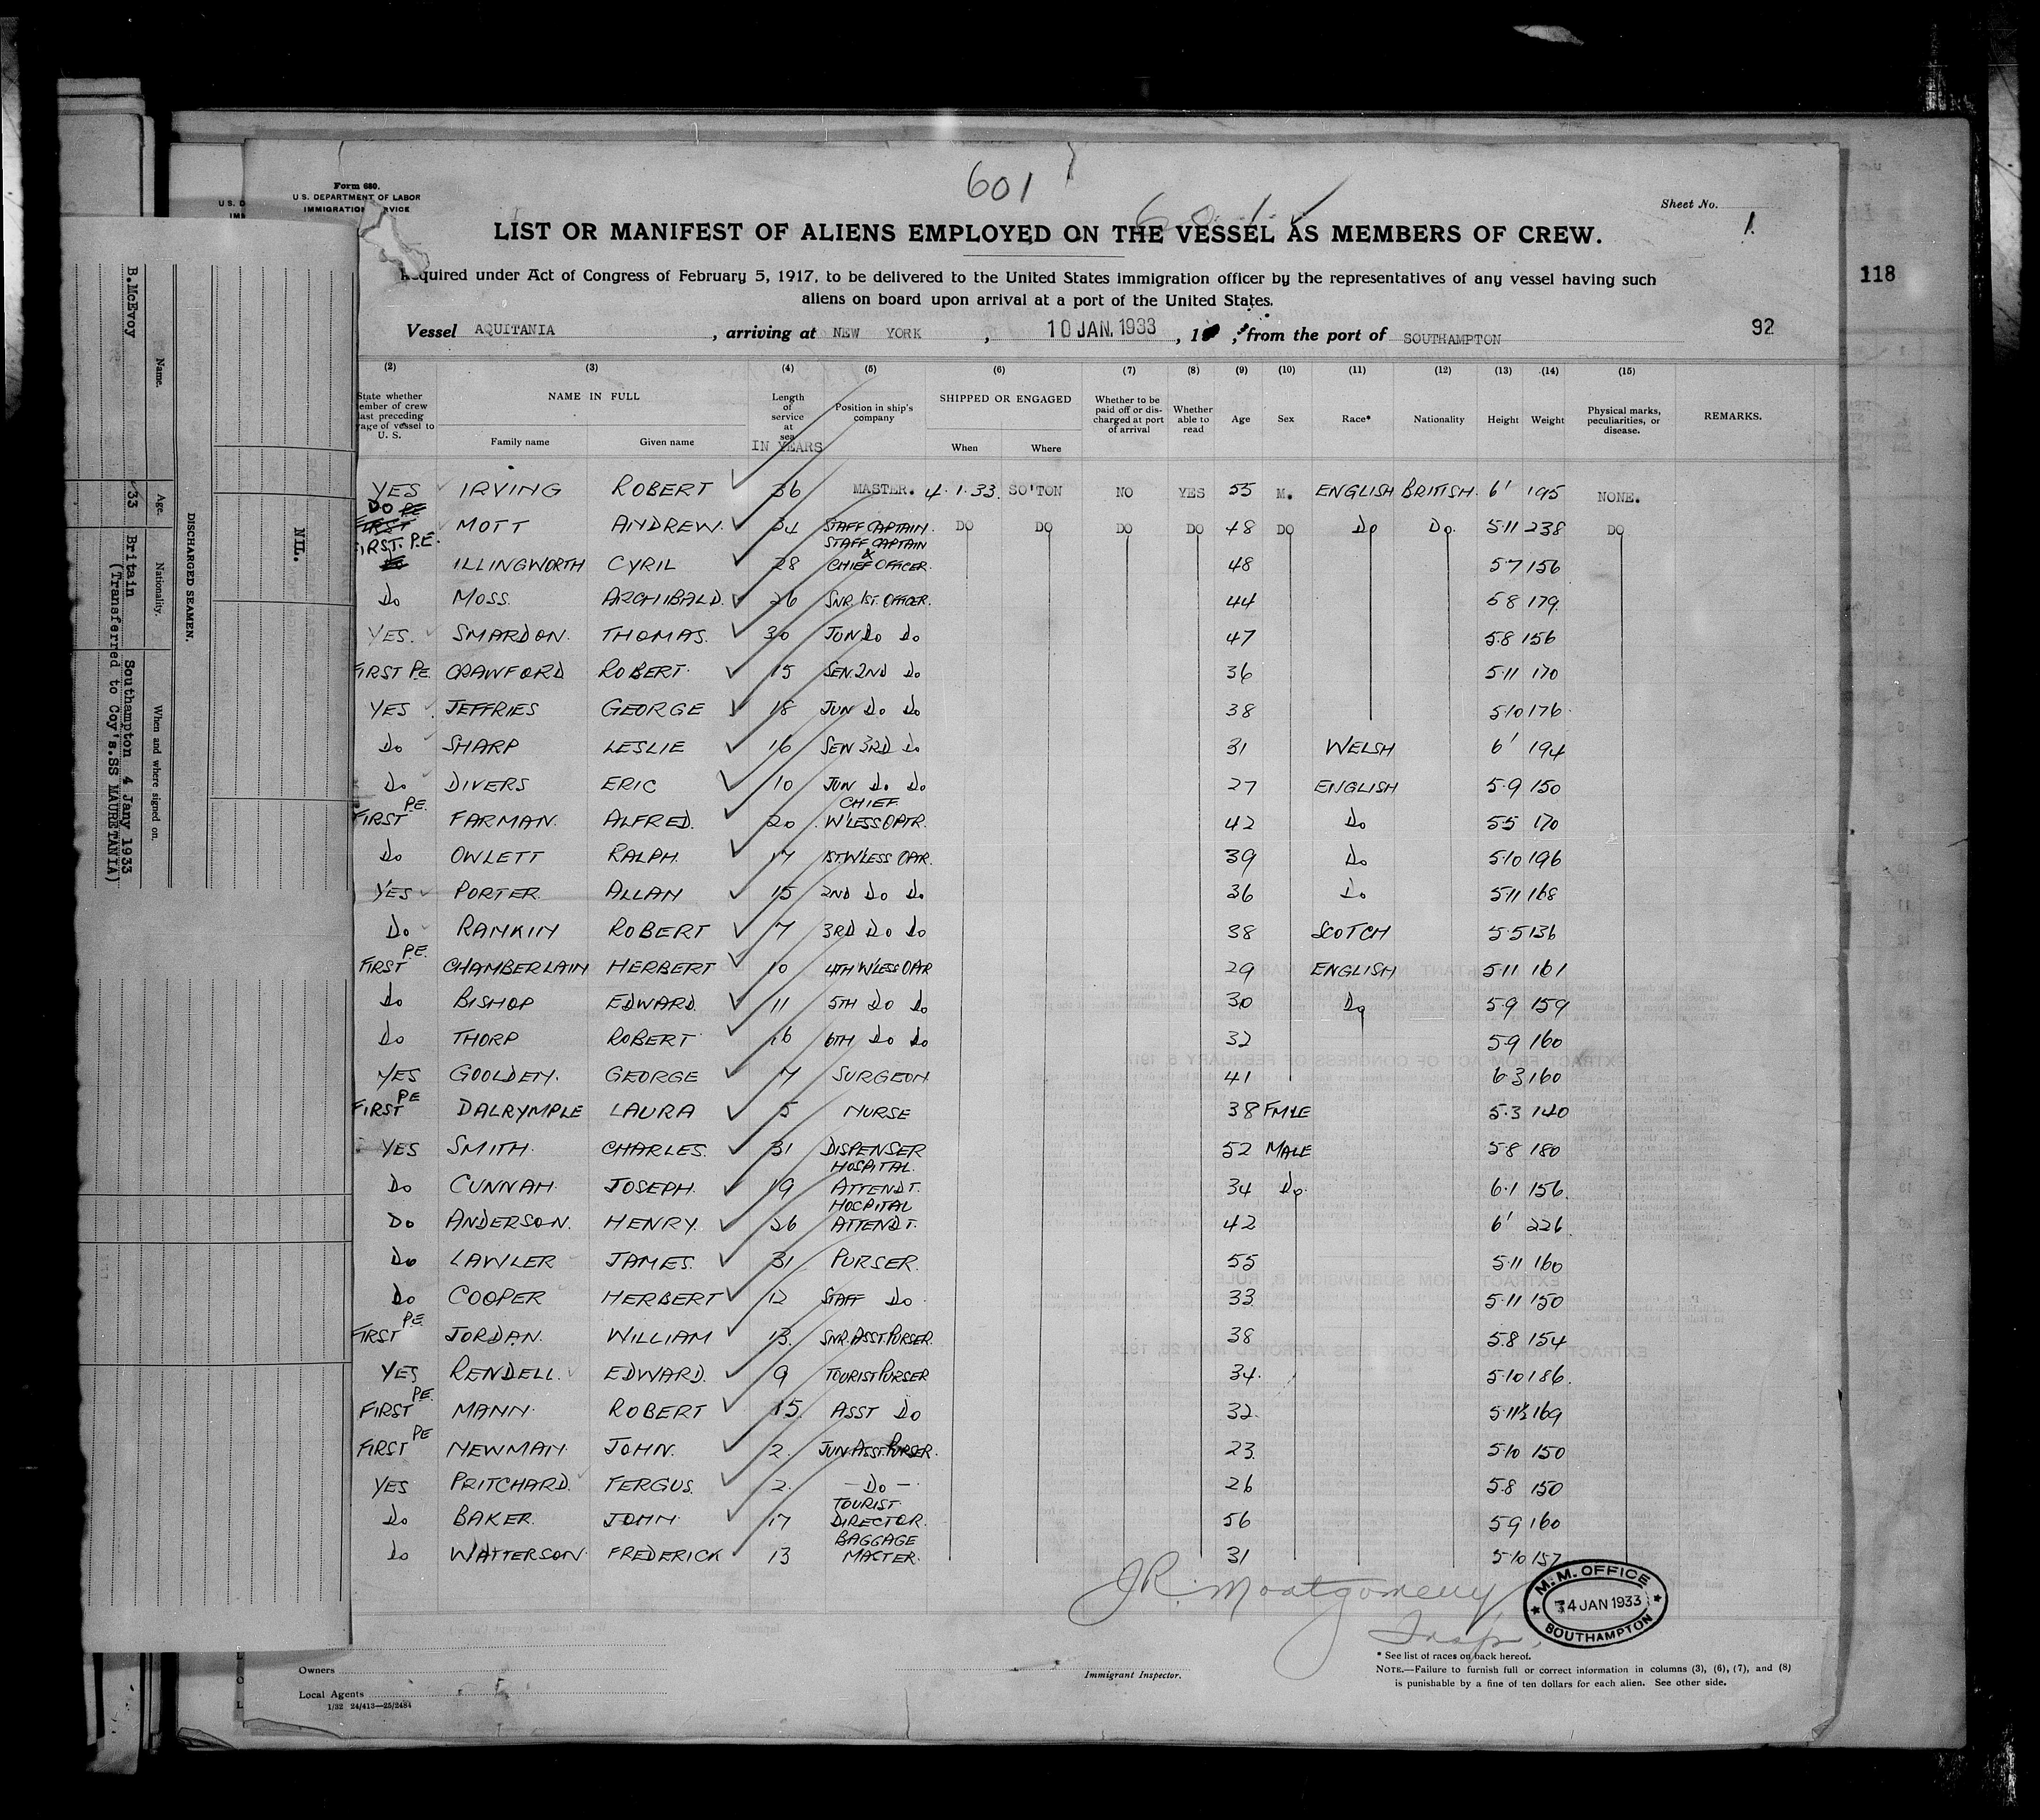 601
601 ✓
Form 680.
U. S. DEPARTMENT OF LABOR
IMMIGRATION SERVICE
U. S. D
IMM
Sheet No.
1.
LIST OR MANIFEST OF ALIENS EMPLOYED ON THE VESSEL AS MEMBERS OF CREW.
Required under Act of Congress of February 5, 1917, to be delivered to the United States immigration officer by the representatives of any vessel having such
aliens on board upon arrival at a port of the United States.
118
Vessel AQUITANIA, arriving at NEW YORK, 10 JAN. 1933, 1 , from the port of SOUTHAMPTON
92
(2) (3) (4) (5) (6) (7) (8) (9) (10) (11) (12) (13) (14) (15)
State whether member of crew last preceding voyage of vessel to U. S. NAME IN FULL Family name Given name Length of service at sea IN YEARS Position in ship's company SHIPPED OR ENGAGED When Where Whether to be paid off or discharged at port of arrival Whether able to read Age Sex Race* Nationality Height Weight Physical marks, peculiarities, or disease. REMARKS.
YES IRVING ROBERT ✓ 36 MASTER. 4.1.33. SO'TON NO YES 55 M. ENGLISH BRITISH. 6' 195 NONE.
DO MOTT ANDREW. ✓ 34 STAFF CAPTAIN. DO DO DO DO 48 DO DO DO. 5.11 238 DO
FIRST. P.E. ILLINGWORTH CYRIL ✓ 28 STAFF CAPTAIN & CHIEF OFFICER. 48 5.7 156
DO MOSS. ARCHIBALD. ✓ 26 SNR. 1ST. OFFICER. 44 5.8 179.
YES. SMARDON. THOMAS. ✓ 30 JUN DO DO 47 5.8 156
FIRST P.E. CRAWFORD ROBERT. ✓ 15 SEN. 2ND DO 36 5.11 170
YES JEFFRIES GEORGE ✓ 18 JUN DO DO 38 5.10 176.
DO SHARP LESLIE ✓ 16 SEN 3RD DO 31 WELSH 6' 194
DO DIVERS ERIC ✓ 10 JUN DO DO 27 ENGLISH 5.9 150
FIRST P.E. FARMAN. ALFRED. ✓ 20 CHIEF W'LESS OPTR. 42 DO 5.5 170
DO OWLETT RALPH. ✓ 17 1ST. W'LESS OPR. 39 DO 5.10 196
YES PORTER. ALLAN ✓ 15 2ND DO DO 36 DO 5.11 168
DO RANKIN ROBERT ✓ 7 3RD DO DO 38 SCOTCH 5.5 136
FIRST P.E. CHAMBERLAIN HERBERT ✓ 10 4TH W'LESS OPR 29 ENGLISH 5.11 161
DO BISHOP EDWARD. ✓ 11 5TH DO DO 30 DO 5.9 159
DO THORP ROBERT ✓ 16 6TH DO DO 32 5.9 160
YES GOOLDEN. GEORGE ✓ 7 SURGEON 41 6.3 160
FIRST PE DALRYMPLE LAURA ✓ 5 NURSE 38 FMLE 5.3 140
YES SMITH. CHARLES. ✓ 31 DISPENSER 52 MALE 5.8 180
DO CUNNAH. JOSEPH. ✓ 19 HOSPITAL. ATTENDT. 34 DO. 6.1 156.
DO ANDERSON. HENRY. ✓ 26 HOSPITAL ATTENDT. 42 6' 226
DO LAWLER JAMES. ✓ 31 PURSER. 55 5.11 160
DO COOPER HERBERT ✓ 12 STAFF DO 33 5.11 150
FIRST P.E. JORDAN. WILLIAM ✓ 13. SNR. ASST. PURSER. 38 5.8 154
YES RENDELL. EDWARD. ✓ 9 TOURIST PURSER 34. 5.10 186.
FIRST PE. MANN. ROBERT ✓ 15 ASST DO 32. 5.11½ 169
FIRST PE NEWMAN. JOHN. ✓ 2. JUN. ASST. PURSER. 23 5.10 150
YES PRITCHARD. FERGUS. ✓ 2. — DO — 26 5.8 150
DO BAKER. JOHN. ✓ 17 TOURIST. DIRECTOR. 56 5.9 160
DO WATTERSON. FREDERICK ✓ 13 BAGGAGE MASTER. 31 5.10 157
J.R. Montgomery
Insp.
M. M. OFFICE
4 JAN 1933
SOUTHAMPTON
Owners
Local Agents
1/32 24/413—25/2484
Immigrant Inspector.
* See list of races on back hereof.
NOTE.—Failure to furnish full or correct information in columns (3), (6), (7), and (8)
is punishable by a fine of ten dollars for each alien. See other side.
DISCHARGED SEAMEN.
NIL.
Name. Age. Nationality. When and where signed on.
B. McEvoy 33 Britain Southampton 4 Jany 1933
(Transferred to Coy's. SS MAURETANIA)